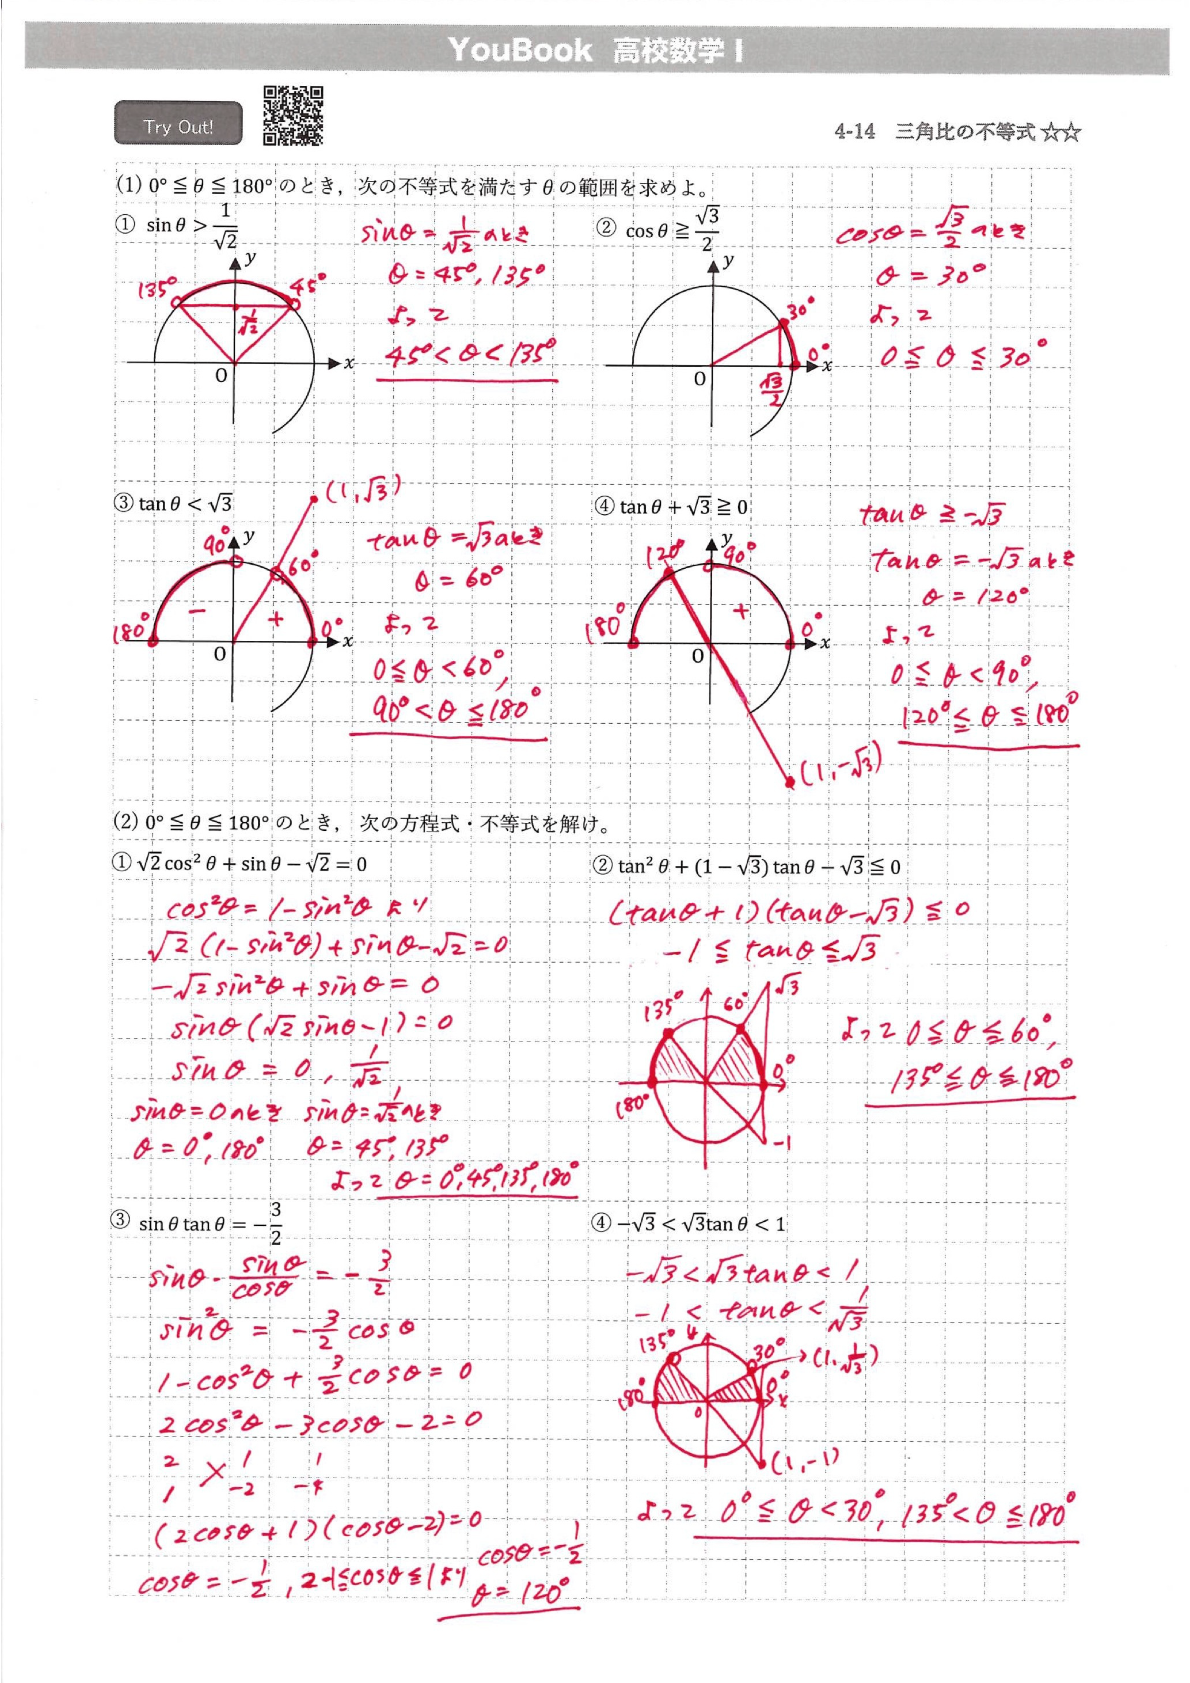 YouBook 高校数学 I
Try Out!
4-14 三角比の不等式 ☆☆
(1) 0° ≦ θ ≦ 180° のとき，次の不等式を満たす θ の範囲を求めよ。
① sin θ > 1/√2
sinθ = 1/√2 のとき
θ = 45°, 135°
よって
45° < θ < 135°
135°
45°
1/√2
y
x
O
② cos θ ≧ √3/2
cosθ = √3/2 のとき
θ = 30°
よって
0 ≦ θ ≦ 30°
30°
0°
√3/2
y
x
O
③ tan θ < √3
(1, √3)
tanθ = √3 のとき
θ = 60°
よって
0 ≦ θ < 60°,
90° < θ ≦ 180°
90°
60°
180°
0°
−
+
y
x
O
④ tan θ + √3 ≧ 0
tanθ ≧ -√3
tanθ = -√3 のとき
θ = 120°
よって
0 ≦ θ < 90°,
120° ≦ θ ≦ 180°
120°
90°
180°
0°
+
y
x
O
(1, -√3)
(2) 0° ≦ θ ≦ 180° のとき， 次の方程式・不等式を解け。
① √2 cos² θ + sin θ − √2 = 0
cos²θ = 1 - sin²θ より
√2 (1 - sin²θ) + sinθ - √2 = 0
-√2 sin²θ + sinθ = 0
sinθ (√2 sinθ - 1) = 0
sinθ = 0, 1/√2
sinθ = 0 のとき sinθ = 1/√2 のとき
θ = 0°, 180° θ = 45°, 135°
よって θ = 0°, 45°, 135°, 180°
② tan² θ + (1 − √3) tan θ − √3 ≦ 0
(tanθ + 1)(tanθ - √3) ≦ 0
-1 ≦ tanθ ≦ √3
135°
60°
√3
180°
0°
-1
よって 0 ≦ θ ≦ 60°,
135° ≦ θ ≦ 180°
③ sin θ tan θ = −3/2
sinθ · sinθ/cosθ = -3/2
sin²θ = -3/2 cosθ
1 - cos²θ + 3/2 cosθ = 0
2cos²θ - 3cosθ - 2 = 0
2 1 1
1 -2 -4
(2cosθ + 1)(cosθ - 2) = 0
cosθ = -1/2, 2 -1≦cosθ≦1より
cosθ = -1/2
θ = 120°
④ −√3 < √3tan θ < 1
-√3 < √3 tanθ < 1
-1 < tanθ < 1/√3
135°
y
30°
(1, 1/√3)
180°
0°
0
x
(1, -1)
よって 0° ≦ θ < 30°, 135° < θ ≦ 180°